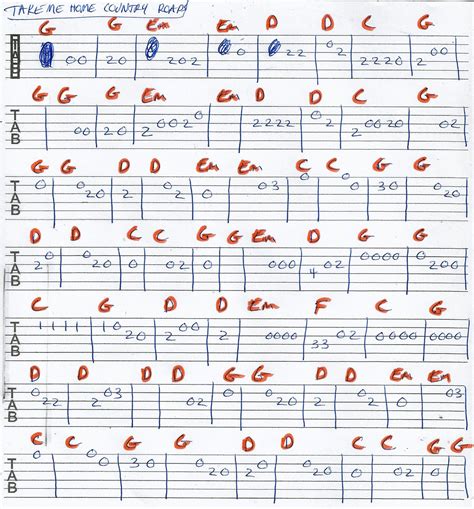 TAKE ME HOME COUNTRY ROADS
G G Em Em D D C G
TAB 00 20 202 0 22 02 2220 200
G G G Em Em D D C G
TAB 00 20 2 0020 2222 02 2 0020 02
G G D D Em Em C C G G
TAB 0 020 2 020 0 03 0 0 30 020
D D C C G G Em D G G
TAB 20 020 0 020 0 000 4 02 0000 0 200
C G D D Em F C G
TAB 1111 1020 200 2 0000 33 02 0000 0000
D D D D G G D D Em Em
TAB 0 22 2 03 02 020 2 020 0 03
C C G G D D C C G G
TAB 0 0 0 0 30 020 2 0 020 0 02 0